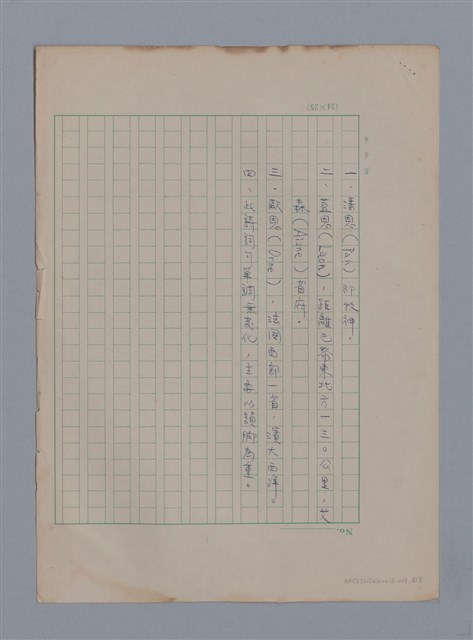 (24×25)
一．潘恩(Pan)即牧神．
二、蓝恩(Laon)，距離巴黎東北方一三○公里，艾
森(Aisne)首府．
三．歐恩(Orne)，法國西部一省，濱大西洋。
四、此詩詞句單調無變化，主要以韻脚為重。
No.